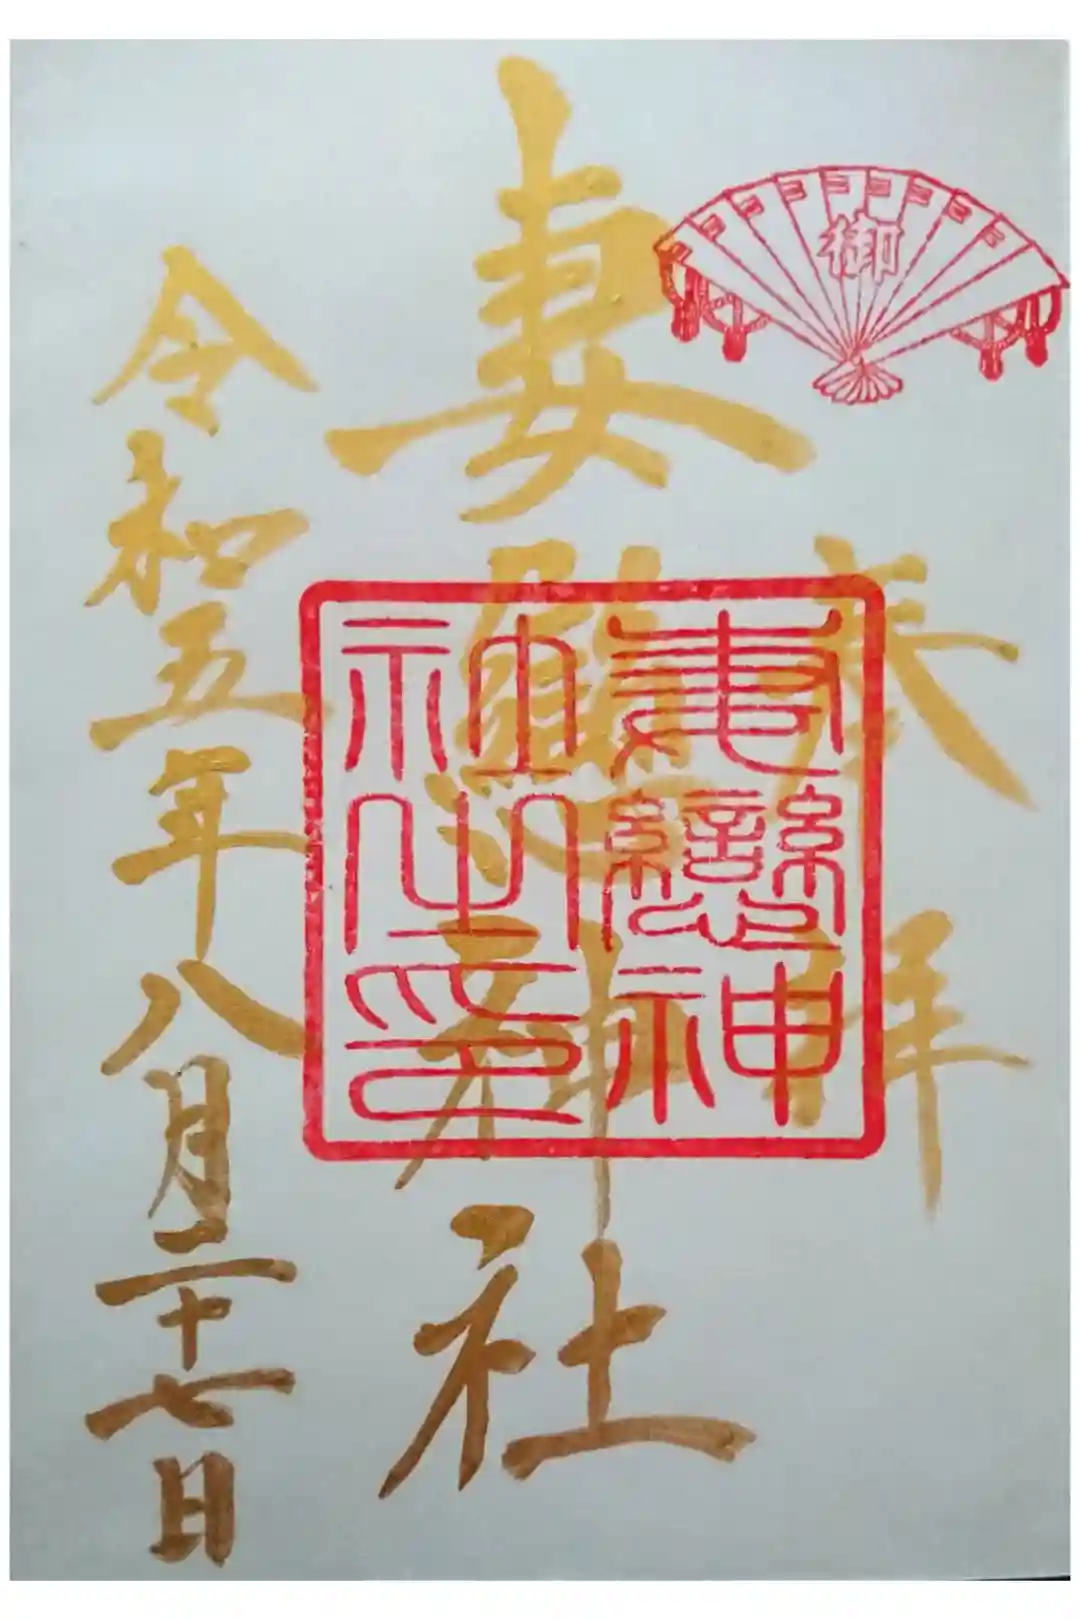 御
奉拝
妻戀神社
妻戀神
社之印
令和五年八月二十七日